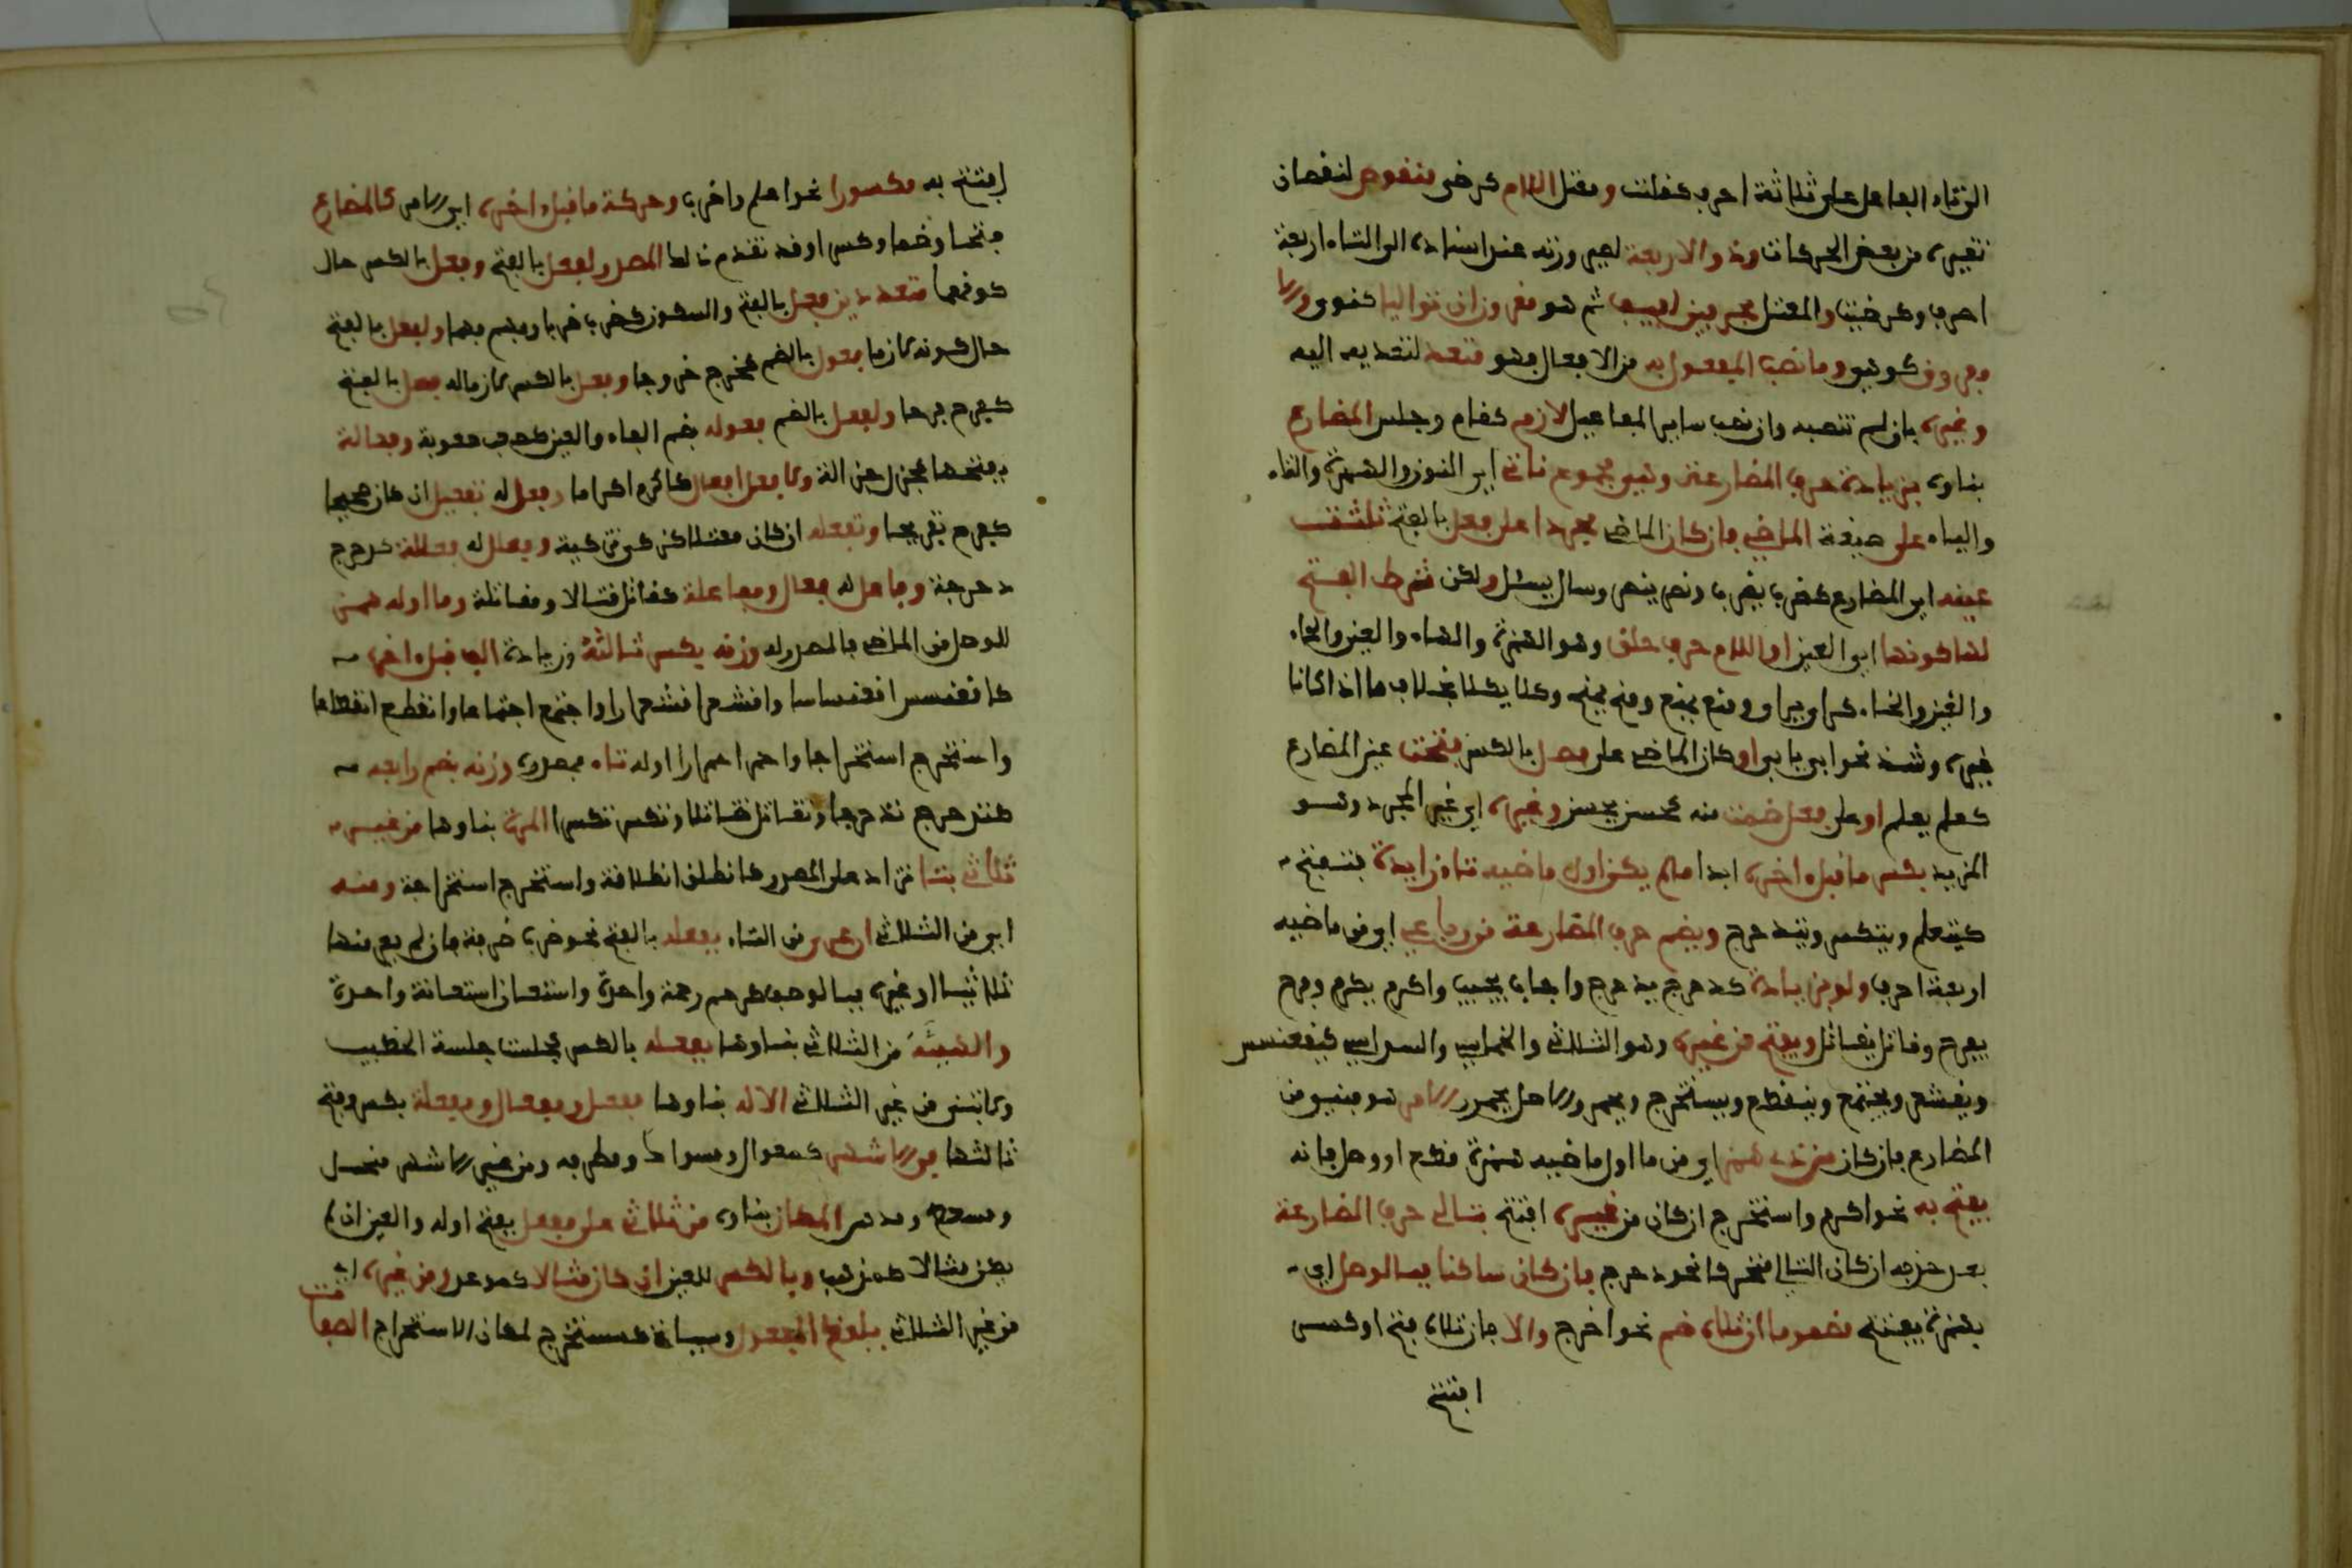 الى تاء الفاعل على ثلاثة احرف كقلت ومعتل اللام كرضى منقوص لنقصان
تغيره من بعض الحركات وذو الاربعة لصيرورته عند اسناده الى التاء اربعة
احرف كرضيت والمعتل بحرفين لفيف ثم هو مقرون ان تواليا كقوى والا
مفروق كوقى وما نصب المفعول به من الافعال فهو متعد لتعديه اليه
وغيره بان لم تنصبه وان نصب ساير المفاعيل لازم كقام وجلس المضارع
بناوه بزيادة حرف المضارعة وهي مجموع نأتي اي النون والهمزة والتاء
والياء على صيغة الماضي فان كان الماضي مجردا على فعل بالفتح ثلثت
عينه اي المضارع كضرب يضرب ونصر ينصر وسال يسئل ولكن شرط الفتح
لها كونها اي العين او اللام حرف حلق وهو الهمزة والهاء والعين والحاء
والغين والخاء ومنع يمنع ومنح يمنح وكلا يكلا بخلاف ما اذا كانا
غيره وشذ نحو ابى يابى او كان الماضي على فعل بالكسر فتحت عين المضارع
كعلم يعلم او على فعل ضمت منه كحسن يحسن وغيره اي غير المجرد وهو
المزيد بكسر ما قبل اخره ابدا ما لم يكن اول ماضيه تاء زايدة فتفتح
كيتعلم ويتكسر ويتدحرج ويضم حرف المضارعة من رباعي اي من ماضيه
اربعة احرف ولو بزيادة كدحرج يدحرج واجاب يجيب واكرم يكرم وفرح
يفرح وقاتل يقاتل ويفتح من غيره وهو الثلاثي والخماسي والسداسي كيقعنسس
ويقشعر ويجتمع وينقطع ويستخرج ويحمر والاصل يحمرر الامر هو مبني من
المضارع فان كان من ذي همز اي من ما اول ماضيه همزة قطع او وصل فانه
يفتح به نحو اكرم واستخرج ان كان من غيره افتتح بتالي حرف المضارعة
بعد حذفه ان كان التالي متحركا نحو دحرج فان كان ساكنا فبالوصل اي
بهمزة يفتتح مضموما ان تلاه ضم نحو اخرج والا فان تلاه فتح او كسر
افتتح
افتتح به مكسورا نحو اعلم واضرب وحركة ما قبل اخره اي الامر كالمضارع
فتحا وضما وكسرا وقد تقدم ذلك المصدر لفعل بالفتح وفعل بالكسر حال
كونهما متعديين فعل بالفتح والسكون كضرب ضربا وفهم فهما ولفعل بالفتح
حال كونه لازما فعول بالضم كخرج خروجا وفعل بالكسر لازما له فعل بالفتح
كفرح فرحا ولفعل بالضم فعوله بضم الفاء والعين كصعب صعوبة وفعالة
بفتحها كجزل جزالة ولافعل افعال كاكرم اكراما وفعل له تفعيل ان كان صحيحا
كفرح تفريحا وتفعله ان كان معتلا كزكى تزكية وفعلل له فعللة كدحرج
دحرجة وفاعل له فعال ومفاعلة كقاتل قتالا ومقاتلة وما اوله همز
للوصل من الماضي فالمصدر له وزنه بكسر ثالثه وزيادة الف قبل اخره
كاقعنسس اقعنساسا واقشعر اقشعرارا واجتمع اجتماعا وانقطع انقطاعا
واستخرج استخراجا واحمر احمرارا اوله تاء فمصدره وزنه بضم رابعه
كتدحرج تدحرجا وتقاتل تقاتلا وتكسر تكسرا المرة بناوها من غير
ثلاثي بتاء تزاد على المصدر كانطلق انطلاقة واستخرج استخراجة ومنه
اي من الثلاثي ان عري من التاء بفعلة بالفتح نحو ضرب ضربة فان لم يعر منها
ثلاثيا او غيره فبالوصف كرحم رحمة واحدة واستعان استعانة واحدة
والهيئة من الثلاثي بناوها بفعلة بالكسر كجلست جلسة الخطيب
ولا تبنى من غير الثلاثي الالة بناوها مفعل ومفعال ومفعلة بكسر وفتح
ثالثها والاشهر ومطرقة ومن غير الاشهر منخل
ومسعط ومدهن المكان بناوه من ثلاثي على مفعل بفتح اوله والعين ان لم
يكن مثالا كمذهب وبالكسر للعين ان كان مثالا كموعد ومن غيره اي
من غير الثلاثي بلفظ المفعول وسياتي كمستخرج لمكان الاستخراج الصفات